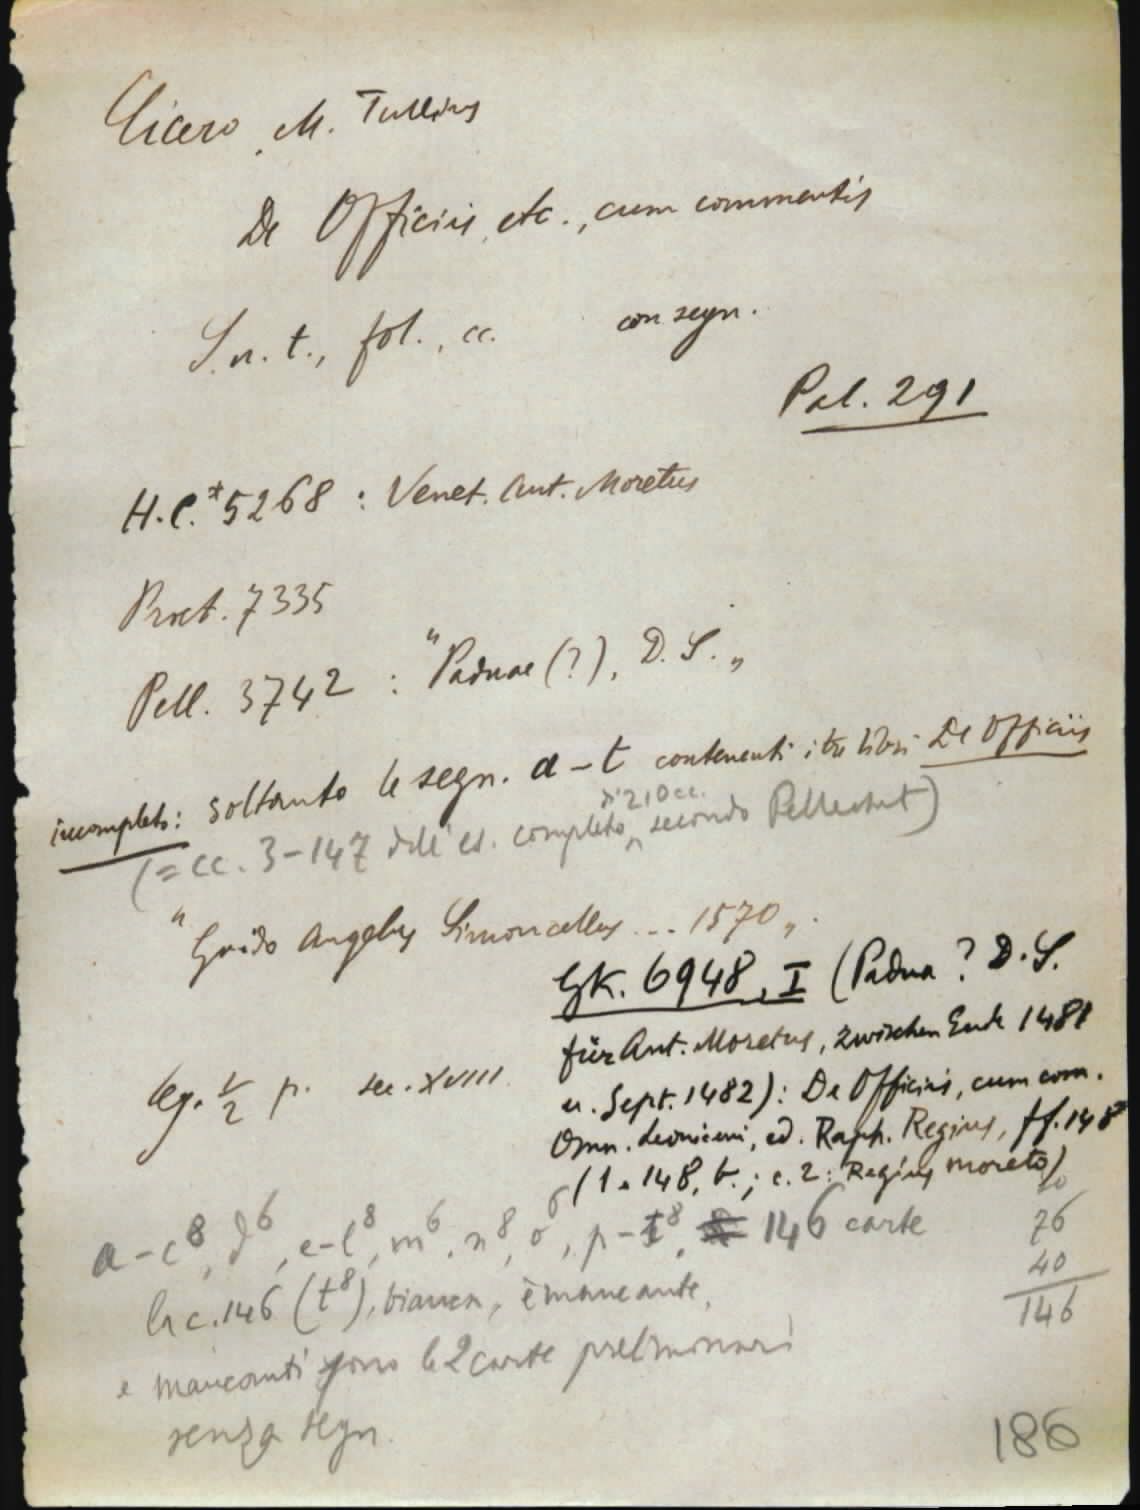 Cicero, M. Tullius
De Officiis, etc., cum commentis
S. n. t., fol., cc. con segn.
Pal. 291
H.C.*5268 : Venet. Ant. Moretus
Proct. 7335
Pell. 3742 : "Paduae (?), D. S."
incompleto: soltanto le segn. a–t contenenti i tre libri De Officiis
di 210 cc.
(= cc. 3–147 dell' es. completo, secondo Pellechet)
"Guido Angelus Simoncellus ... 1570".
GK. 6948, I (Padua ? D. S.
für Ant. Moretus, zwischen Ende 1481
u. Sept. 1482): De Officiis, cum com.
Omn. Leoniceni, ed. Raph. Regius, ff. 148
(1 148, b.; c. 2: Regius Moreto)
leg. 1/2 p. sec. XVIII.
a–c8, d6, e–l8, m6, n8, o6, p–t8, 146 carte
76
40
146
la c. 146 (t8), bianca, è mancante,
e mancanti sono le 2 carte preliminari
senza segn.
186